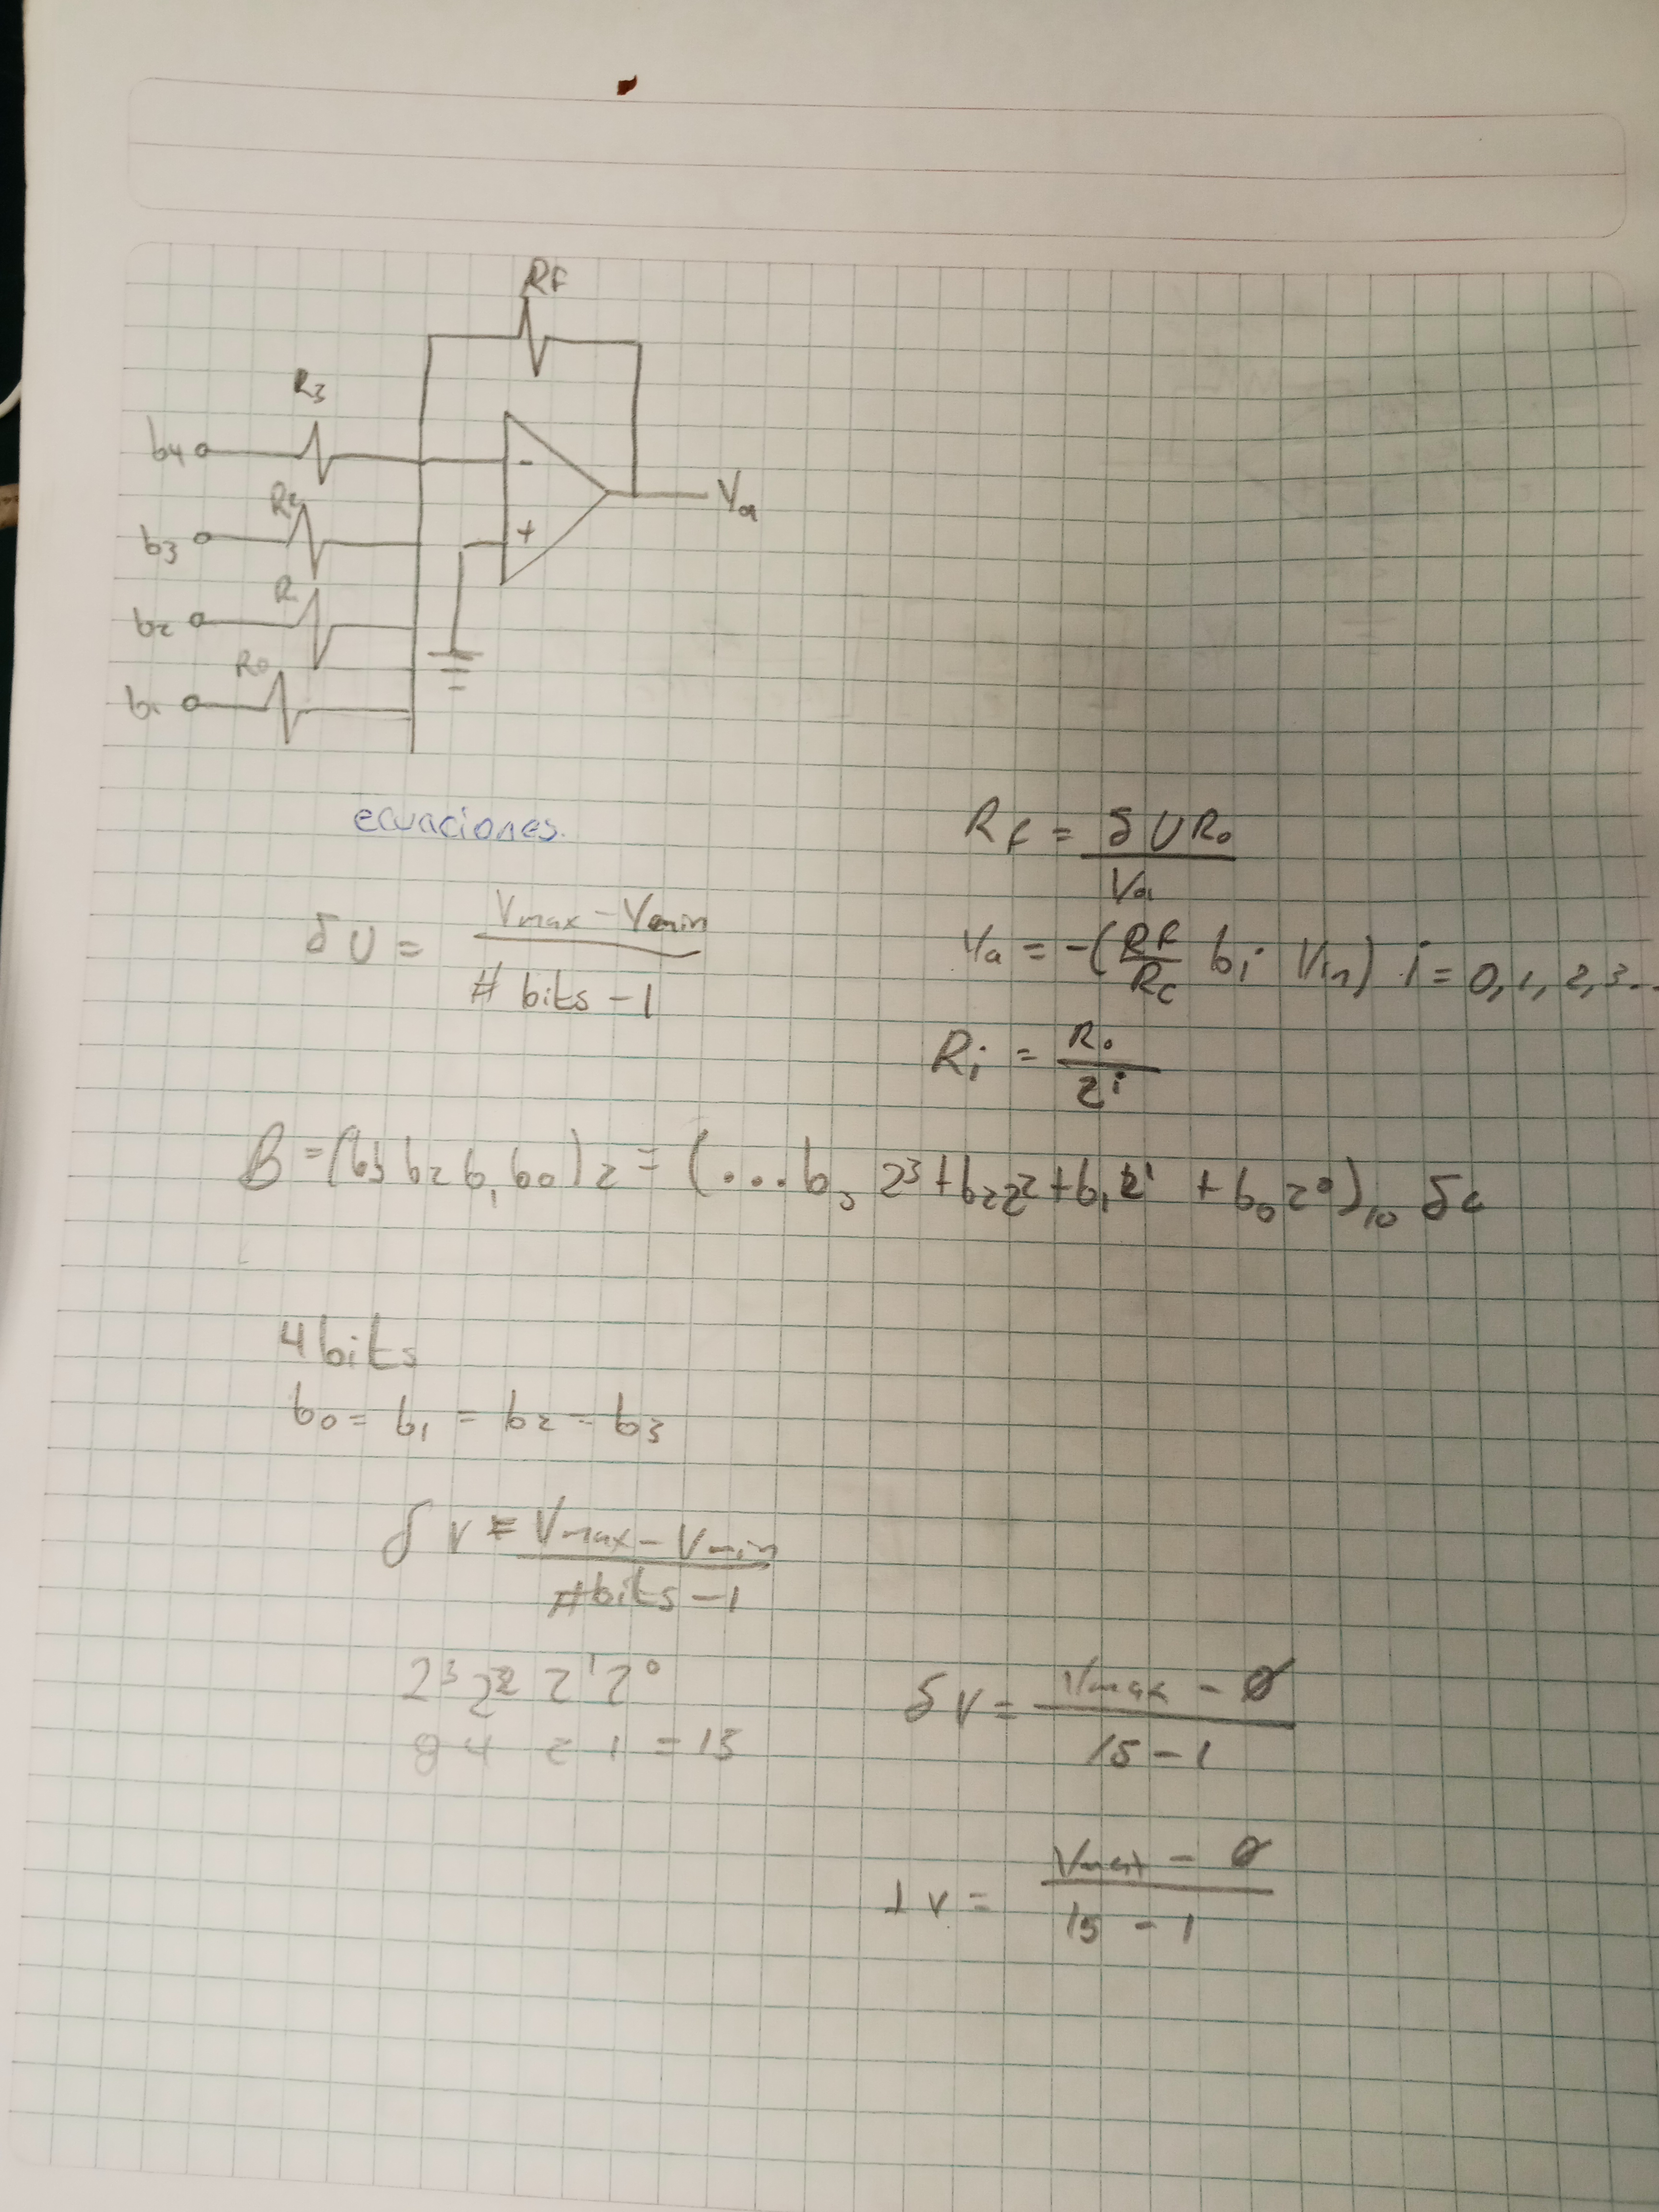 RF
R3
b4
-
Va
R2
b3
+
R
b2
R0
b1
ecuaciones.
RF = δU R0 / Va
δU = Vmax - Vmin / # bits - 1
Va = -(RF/RC bi Vin) i = 0, 1, 2, 3..
Ri = R0 / 2^i
B = (b3 b2 b1 b0)2 = (... b3 2^3 + b2 2^2 + b1 2^1 + b0 2^0)10
4 bits
b0 = b1 = b2 = b3
δV = Vmax - Vmin / #bits - 1
2^3 2^2 2^1 2^0
8 4 2 1 = 15
δV = Vmax - 0 / 15 - 1
1V = Vmax - 0 / 15 - 1